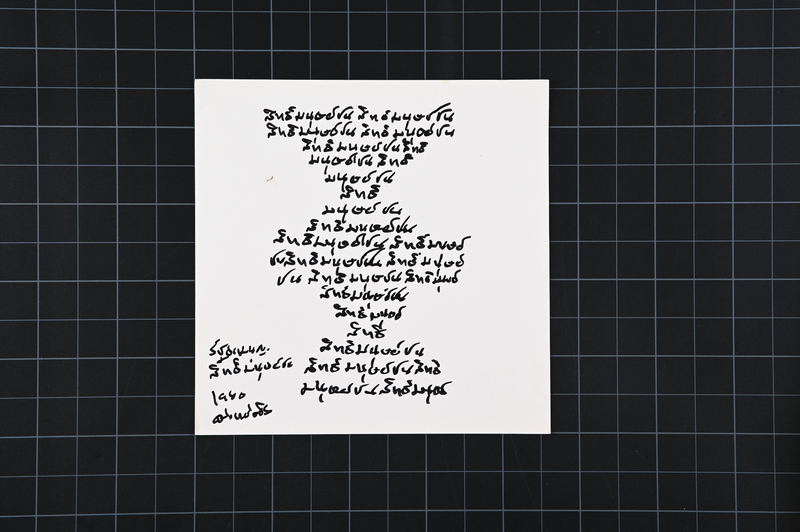 สิทธิมนุษยชน สิทธิมนุษยชน
สิทธิมนุษยชน สิทธิมนุษยชน
สิทธิมนุษยชนสิทธิ
มนุษยชน สิทธิ
มนุษยชน
สิทธิ
มนุษยชน
สิทธิมนุษยชน
สิทธิมนุษยชน สิทธิมนุษย
ชนสิทธิมนุษยชน สิทธิมนุษย
ชน สิทธิมนุษยชน สิทธิมนุษย
สิทธิมนุษยชน
สิทธิมนุษย
สิทธิ
สิทธิมนุษยชน
สิทธิมนุษยชนสิทธิ
มนุษยชนสิทธิมนุษย
สิทธิมนุษยชน